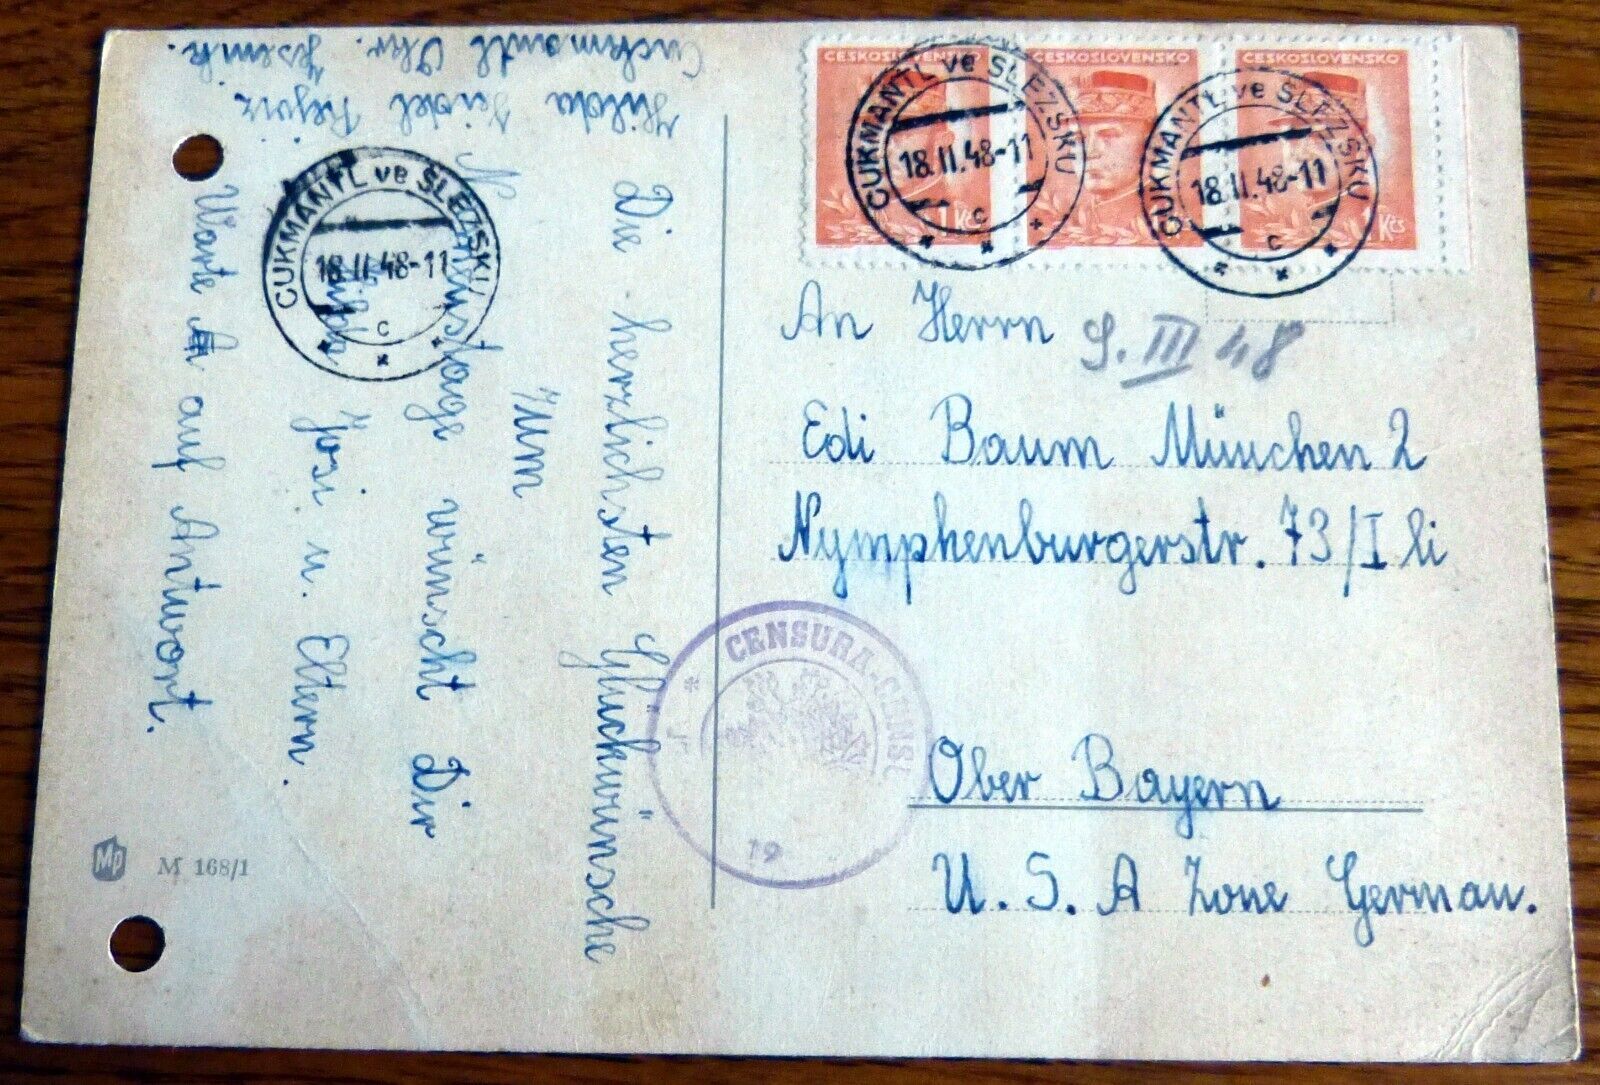 Hilda Seidel Rejvíz
Cuckmantl Okr. Jeseník.
Die herzlichsten Glückwünsche
zum
Namenstage wünscht Dir
Hilda Josi u. Eltern.
Warte auf Antwort.
ČESKOSLOVENSKO
1 Kčs
ČESKOSLOVENSKO
ČESKOSLOVENSKO
1 Kčs
CUKMANTL ve SLEZSKU
18.II.48-11
c
CUKMANTL ve SLEZSKU
18.II.48-11
c
CUKMANTL ve SLEZSKU
18.II.48-11
c
An Herrn
9. III 48
Edi Baum München 2
Nymphenburgerstr. 73/I li
Ober Bayern
U. S. A Zone German.
CENSURA
19
Mp
M 168/1